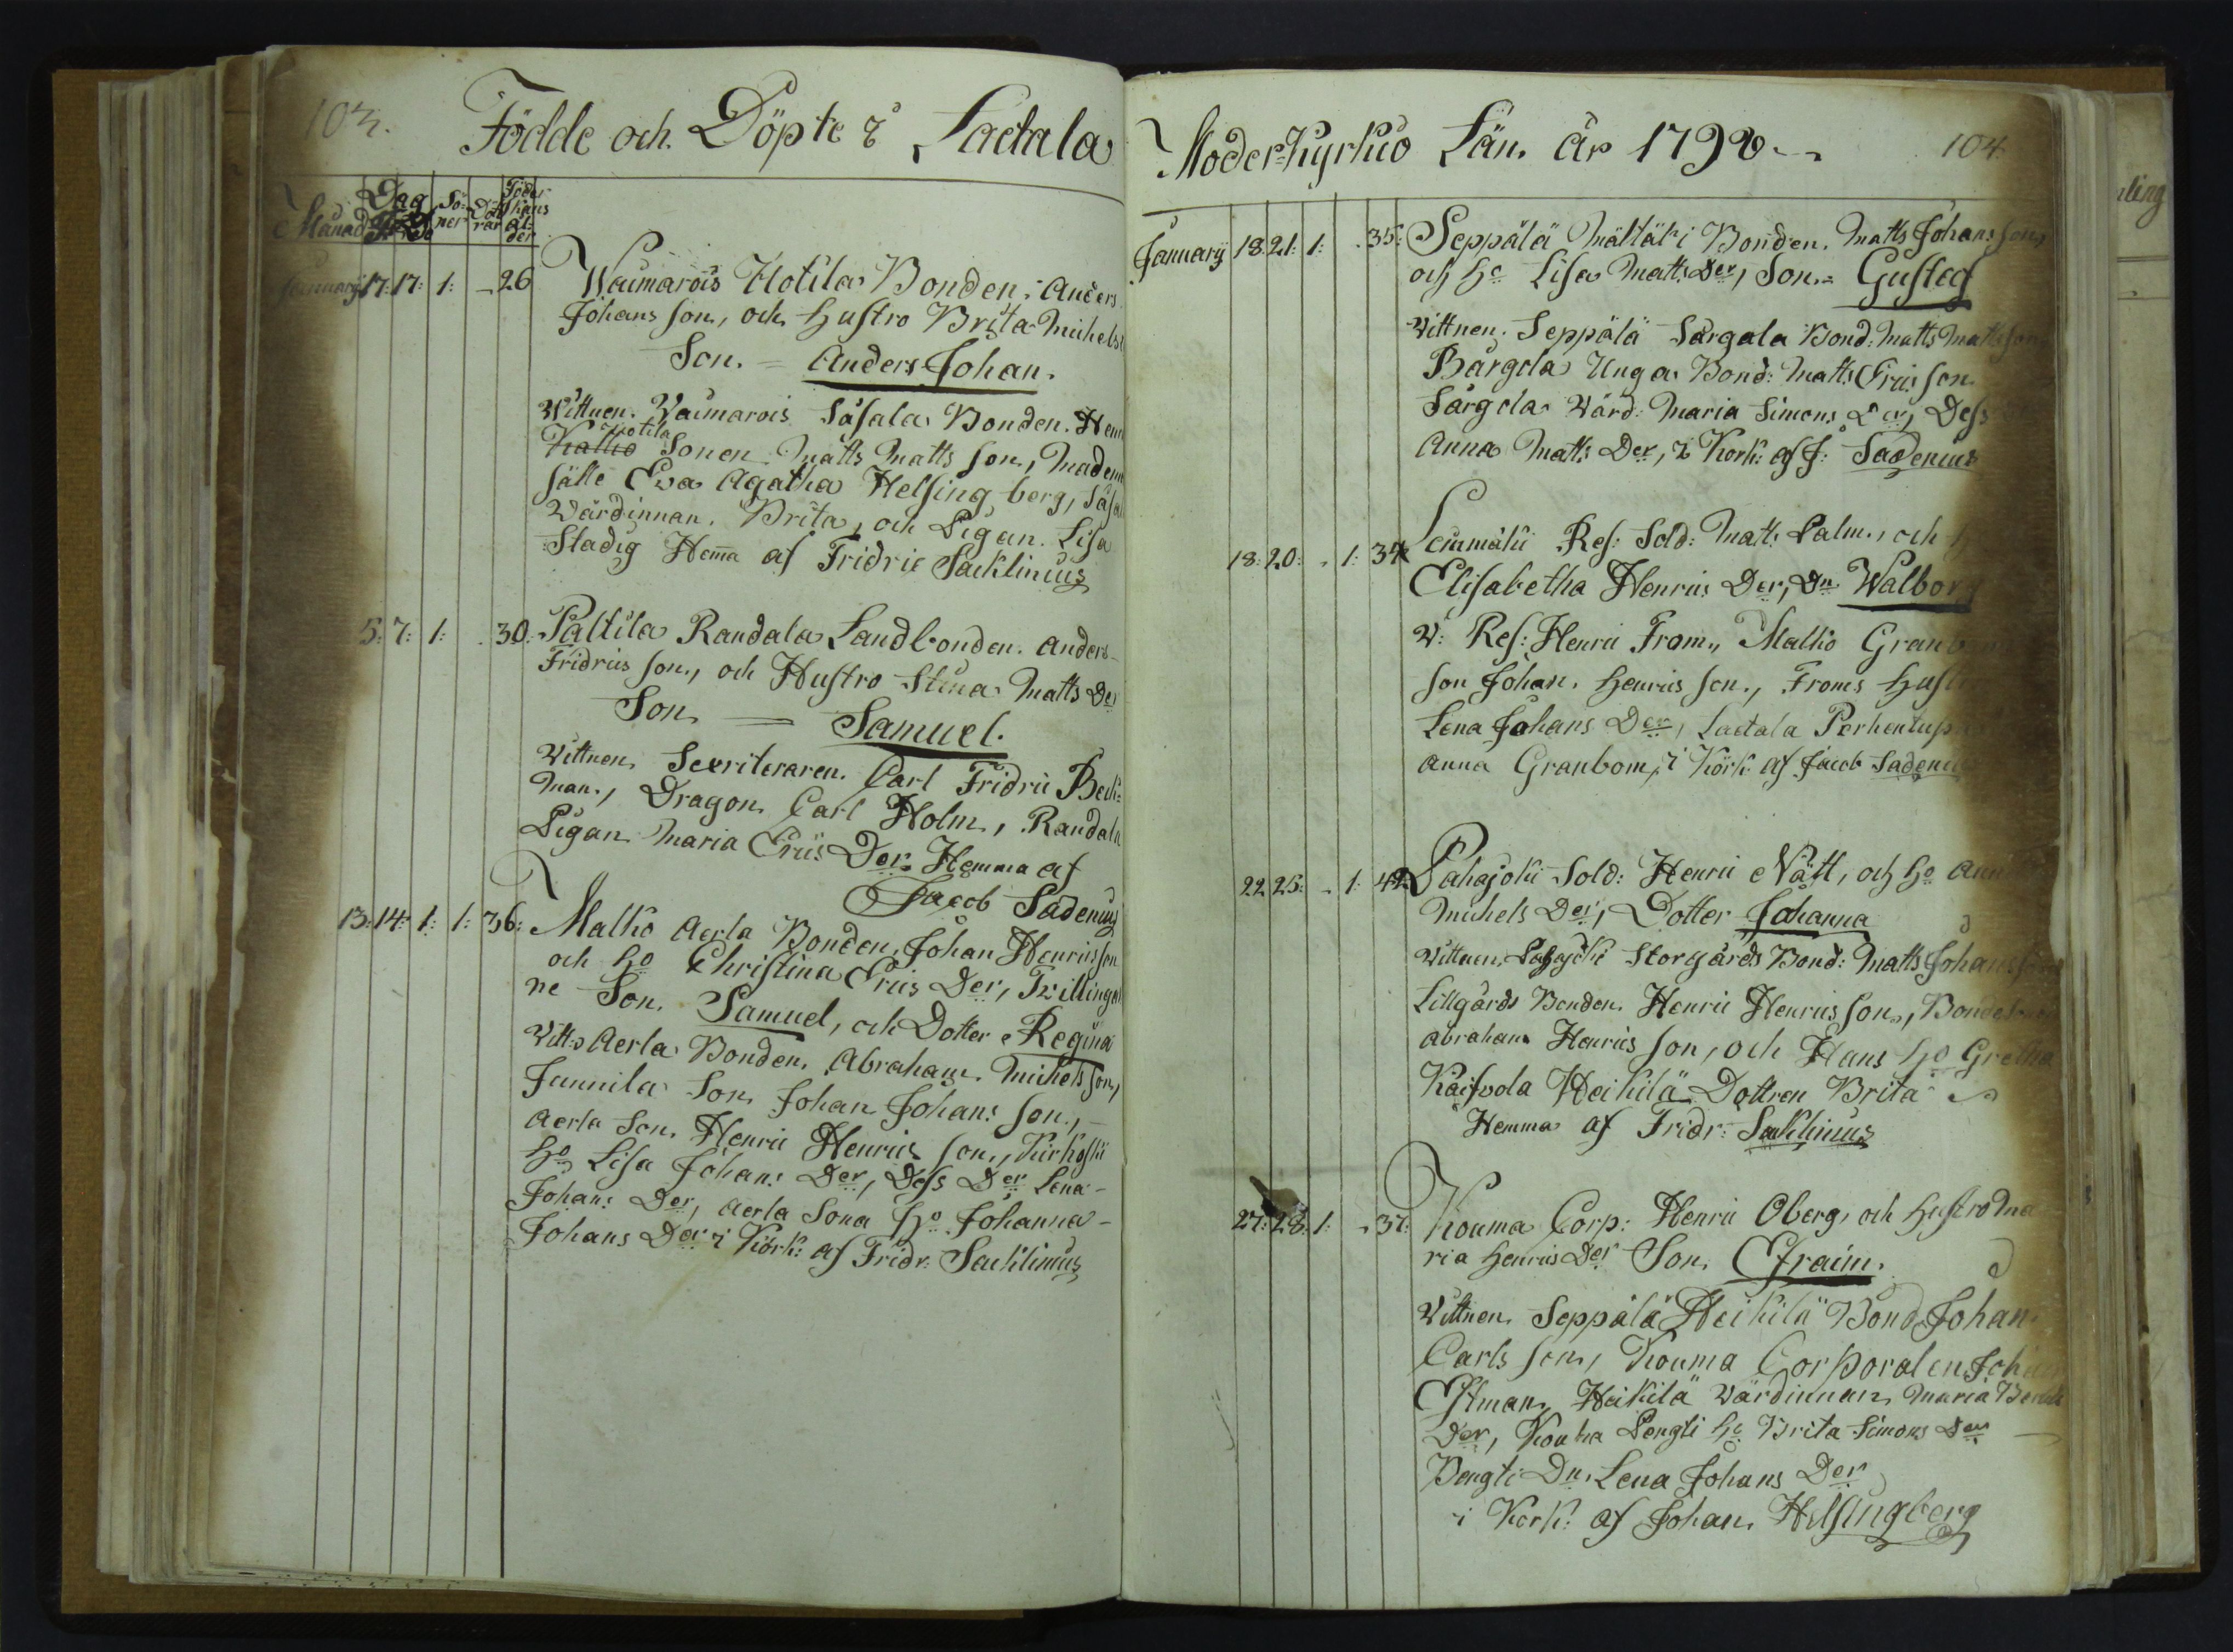 103.
Födde och Döpte i Laetala
Månad Dag Sö= ner Dött rar Föder skans ål der
January 17: 17: 1: - 26
Waimarois Hotila Bonden Anders
Johans son, och Hustro Brita Michels
Son. = Anders Johan.
Wittnen. Vaimarois Säsala Bonden. Hen
Hotila
Sonen Matts Matts son, Madem
sälle Eva Agatha Helsingberg, Säsal
Wärdinnan. Brita, och Pigan. Lisa
Stadig Hema af Fridric Sacklinius
5: 7: 1: 30. Paltila Randala Landbonden. Anders
Fridrics son, och Hustro Stina Matts Der
Son = Samuel.
Wittnen Carl Fridric Beck=
man, Dragon Carl Holm, Randala
Pigan Maria Erics Der Hemma af
Jacob Sadenius
13: 14: 1: 1: 36: Malko Aerla Bonden, Johan Henricsson
och Ho Christina Erics Der, Twillinga
ne Son. Samuel, och Dotter Regina
Witt: Aerla Bonden. Abraham. Michels son,
Junnila Son Johan Johans son,
Aerla Son. Henric Henrics son,
Ho Lisa Johans Der, Dess Der Lena
Johans Der, Aerla Sona Ho Johanna
Johans Der i Körk: af Fridr: Sacklinius
Moderkyrkio Län. År 1792
104.
January 18. 21: 1: 35: Seppälä Mältäki Bonden. Matts Johans son
och Ho Lisa Matts Der, Son = Gustaf
Wittnen. Seppälä Sargala Bond: Matts Mattsson
Unga Bond: Matts Erics son
Sargola Wärd: Maria Simons Der, Dess
Anna Matts Der, i Kork: af J: Sadenius
18: 20: - 1: 34 Res: Sold: Matts Palm, och
Elisabetha Henrics Der, Dr Walborg
W: Res: Henric From, Malko Granb
son Johan. Henrics son, Froms Hust
Lena Johans Der, Laetala
Anna Granbom, i Körk af Jacob Sadenius
22 25: - 1: 42 Pahajoki Sold: Henric Nätt, och Ho Ann
Michels Der, Dotter Johanna
Wittnen. Storgårds Bond: Matts Johansson
Lillgårds Bonden. Henric Henrics son,
Abraham Henrics son, och Hans Ho Gretha
Kaisvola Heikilä Dottren Brita
Hemma af Fridr: Sacklinius
27: 28: 1: - 37: Kouma Corp: Henric Oberg, och Hustro Ma
ria Henrics Der Son. Efraim.
Wittnen. Seppälä Heikilä Bond Johan
Carls son, Kouma Corporalen Joh
Heikilä Wärdinnan Maria
Der, Kouma Pengti Ho Brita Simons Der
Bengti Dr. Lena Johans Der
i Kork: af Johan. Helsingberg